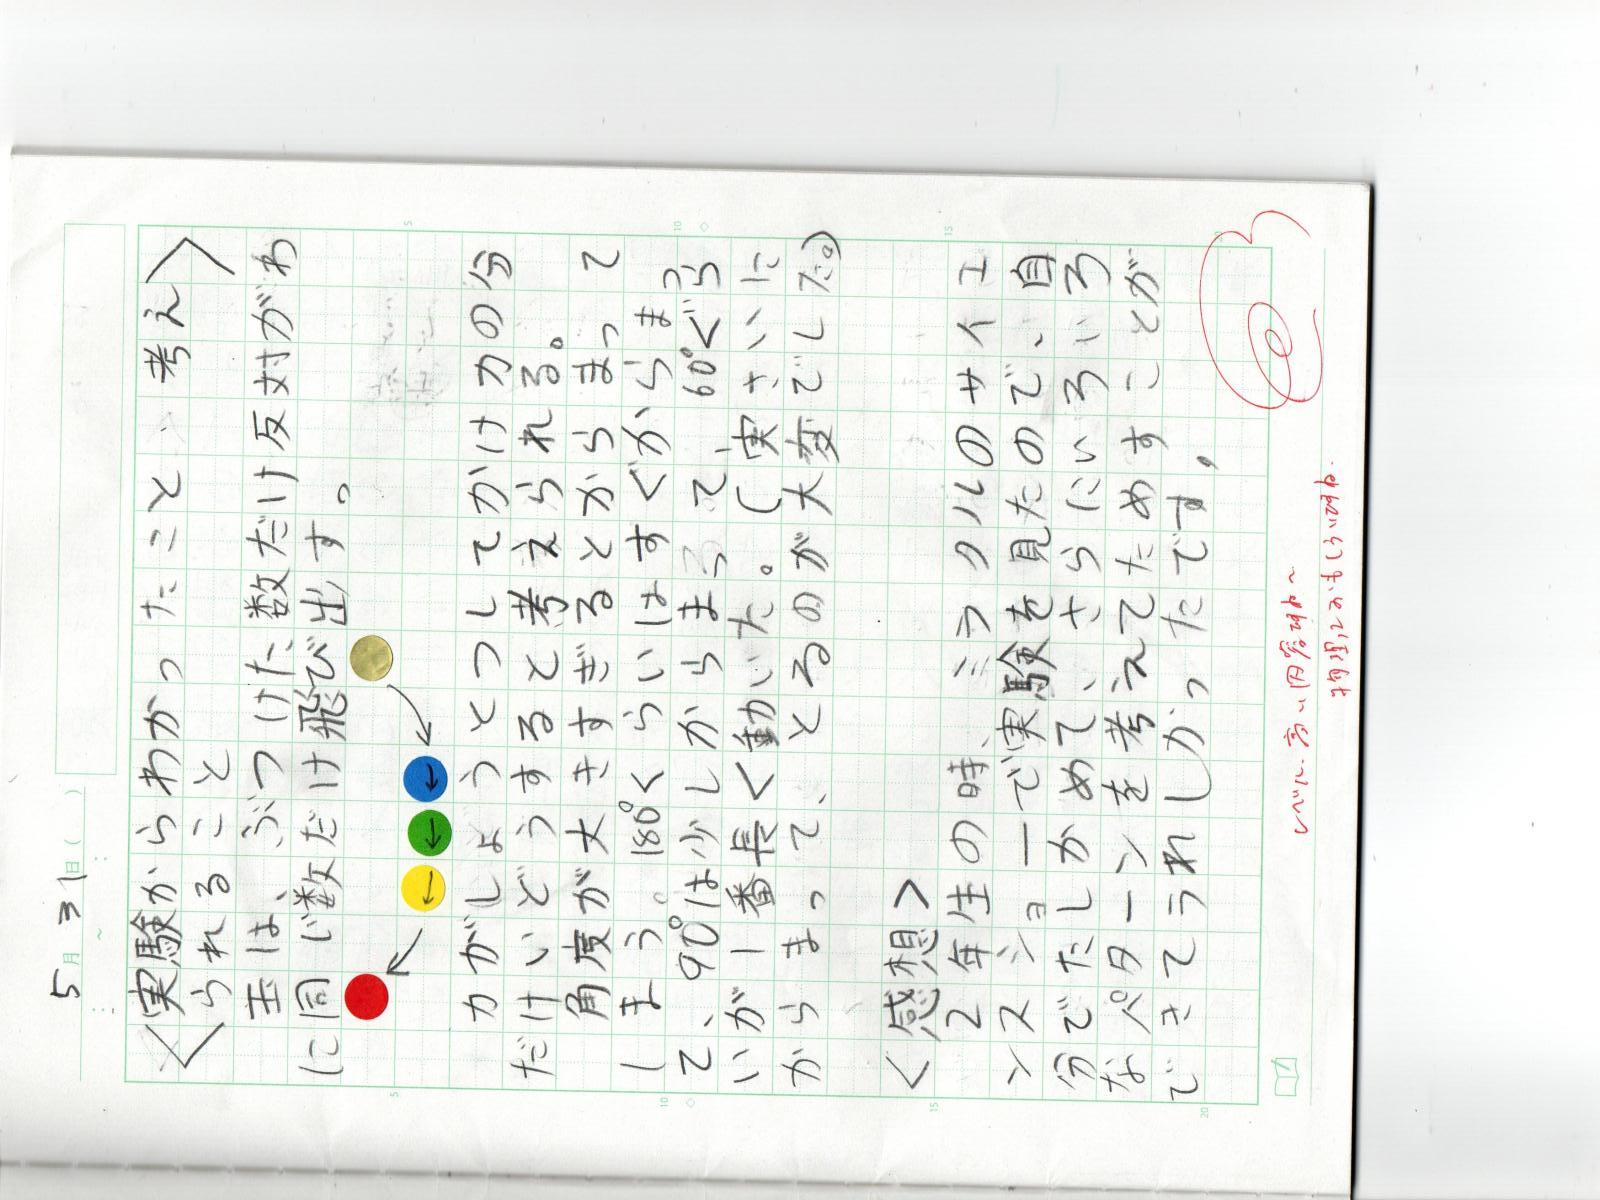 5月31日( )
<実験からわかったこと、考え>
られること
玉は、ぶつけた数だけ反対がわ
に同じ数だけ飛び出す。
力がしょうとつしてかけ力の分
だけいどうすると考えられる。
角度が大きすぎるとからまって
しまう。180°くらいはすぐからまっ
て、90°は少しからまって、60°ぐら
いが一番長く動いた。(実さいに
からまって、とるのが大変でした。)
<感想>
2年生の時、ミラクルのサイエ
ンスショーで実験を見たので、自
分でたしかめて、さらにいろいろ
なパターンを考えてためすことが
できてうれしかったです。